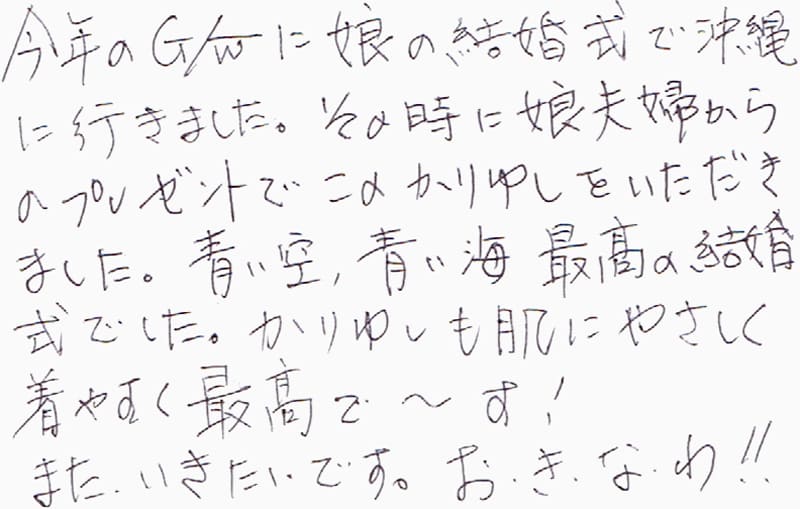 今年のG/Wに娘の結婚式で沖縄
に行きました。その時に娘夫婦から
のプレゼントでこのかりゆしをいただき
ました。青い空,青い海 最高の結婚
式でした。かりゆしも肌にやさしく
着やすく最高で〜す!
また.いきたいです。お.き.な.わ!!